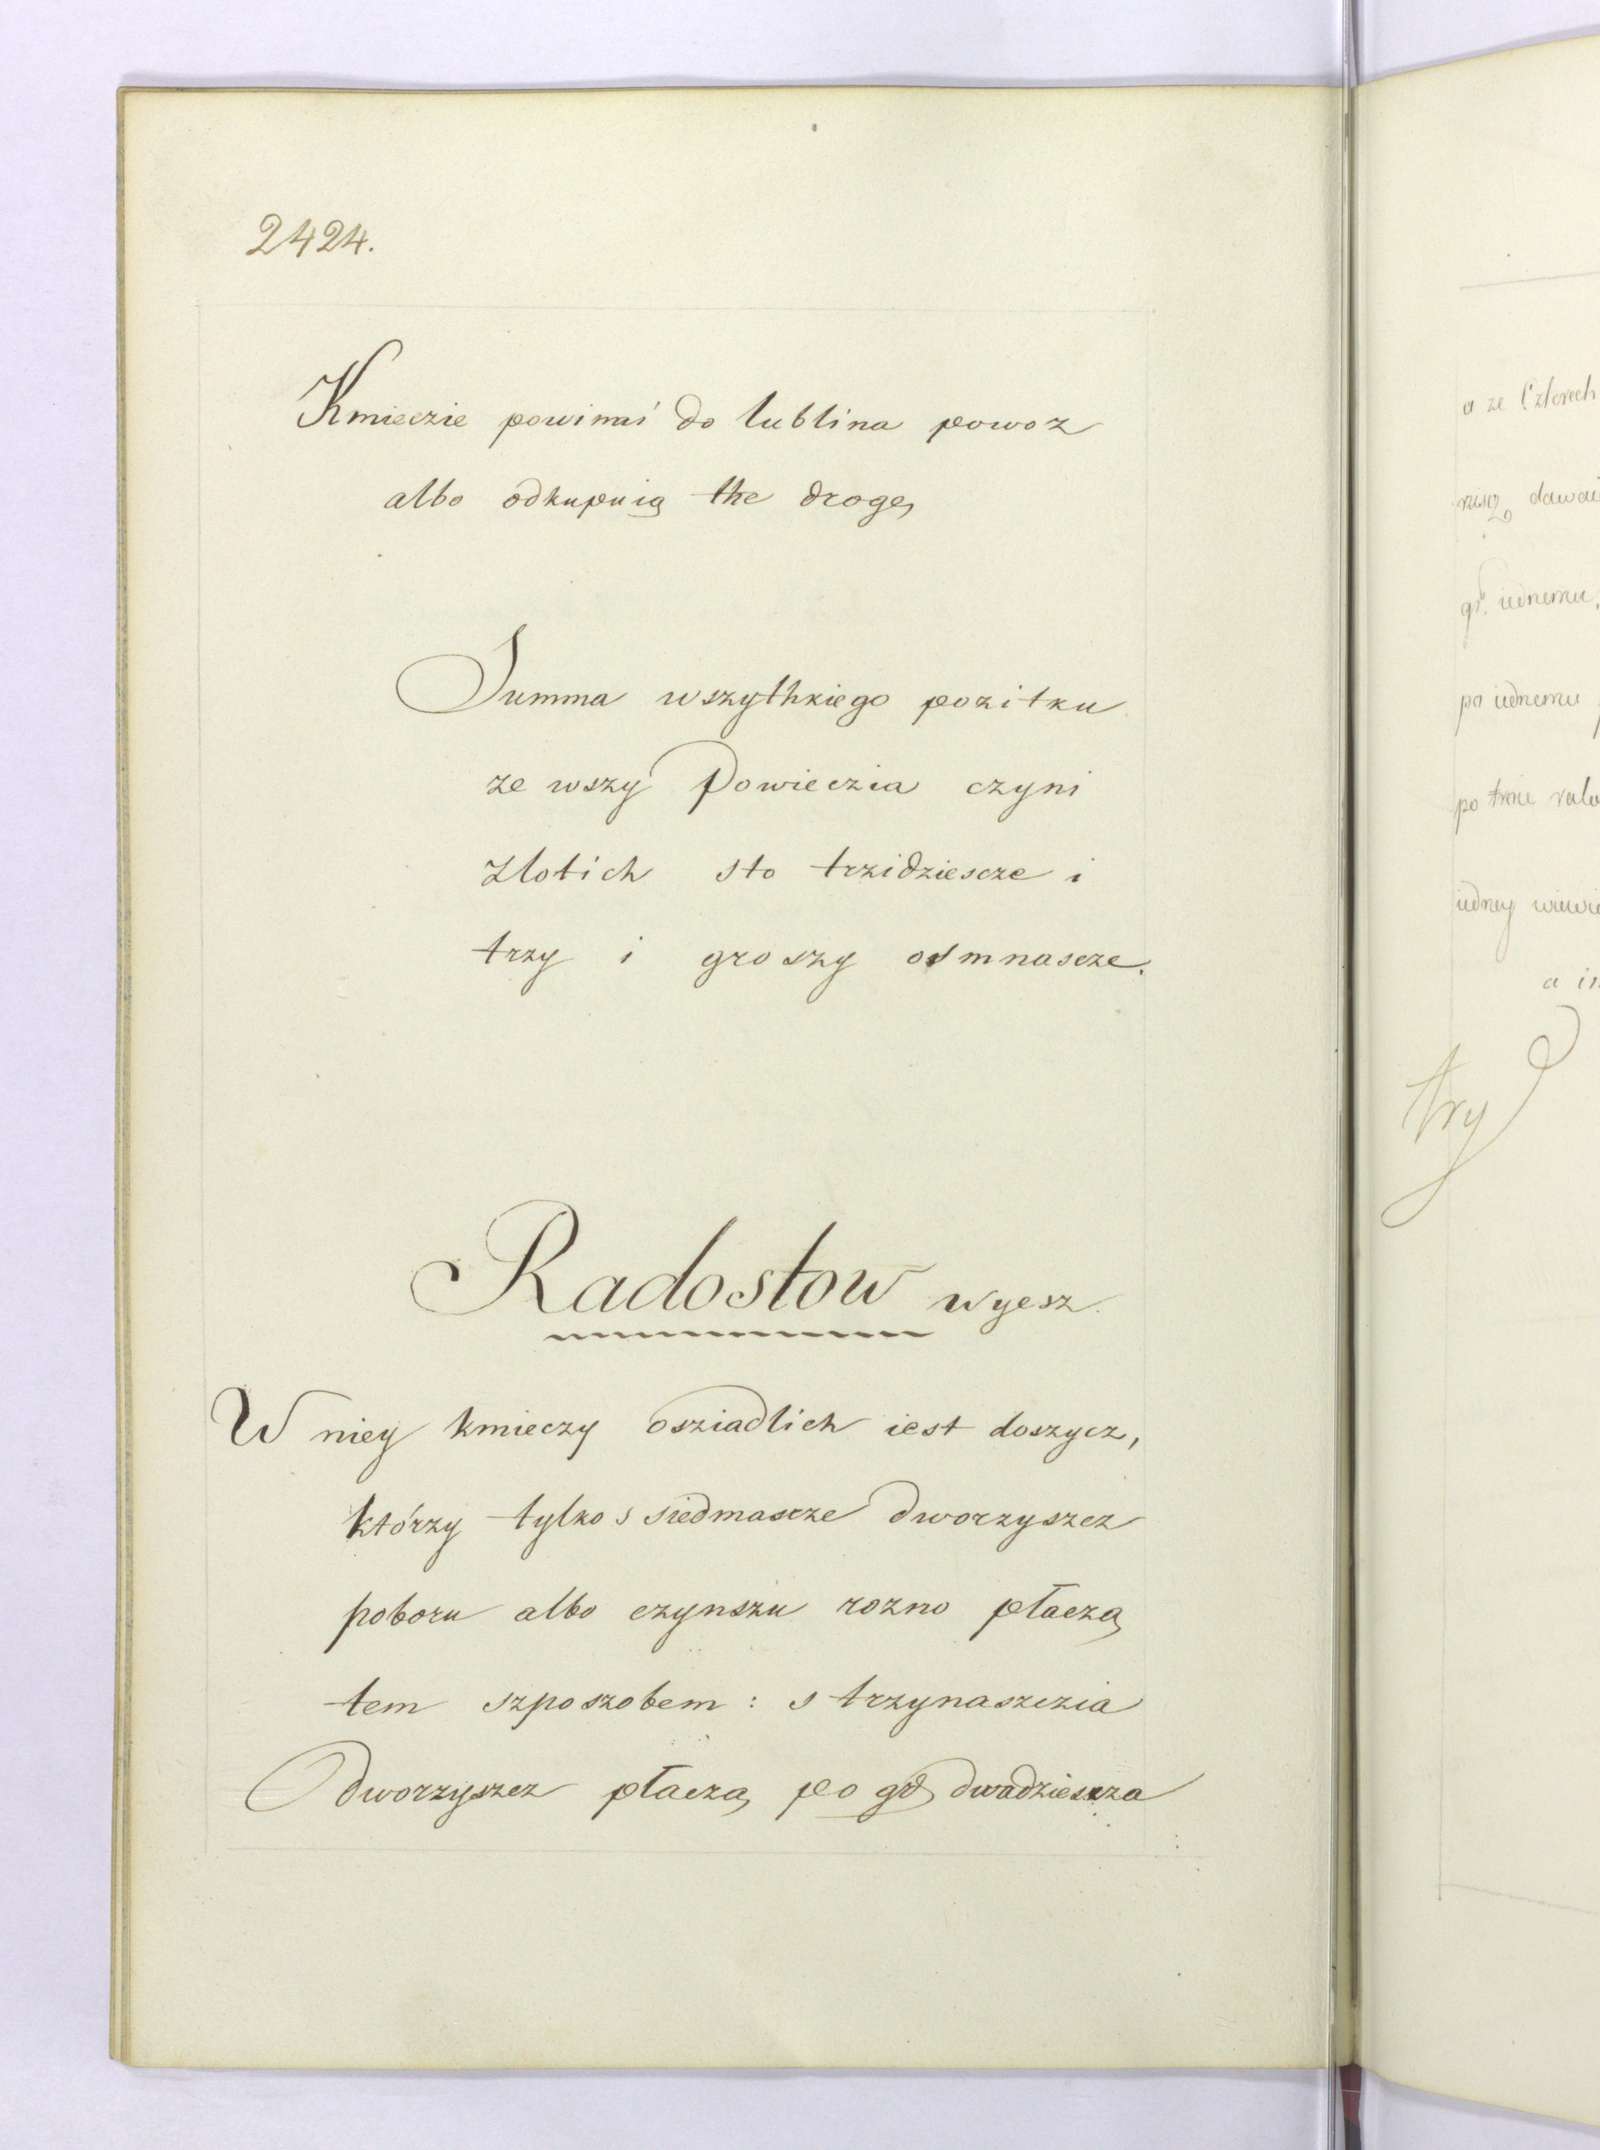 2424.
Kmieczie powinni do lublina powoz
albo odkupuią the drogę
Summa wszythkiego pozitku
ze wszy Powieczia czyni
Zlotich sto trzidziescze i
trzy i groszy osmnascze.
Radostow wyesz.
W niey kmieczy osziadlich iest doszycz,
którzy tylko s siedmascze dworzyszcz
poboru albo czynszu rozno płaczą
tem szposzobem: s trzynaszczia
Dworzyszcz płaczą po gr dwadziescza
a ze Czterech
dawai
gr. iednemu,
po iednemu
po
iedney
a
try